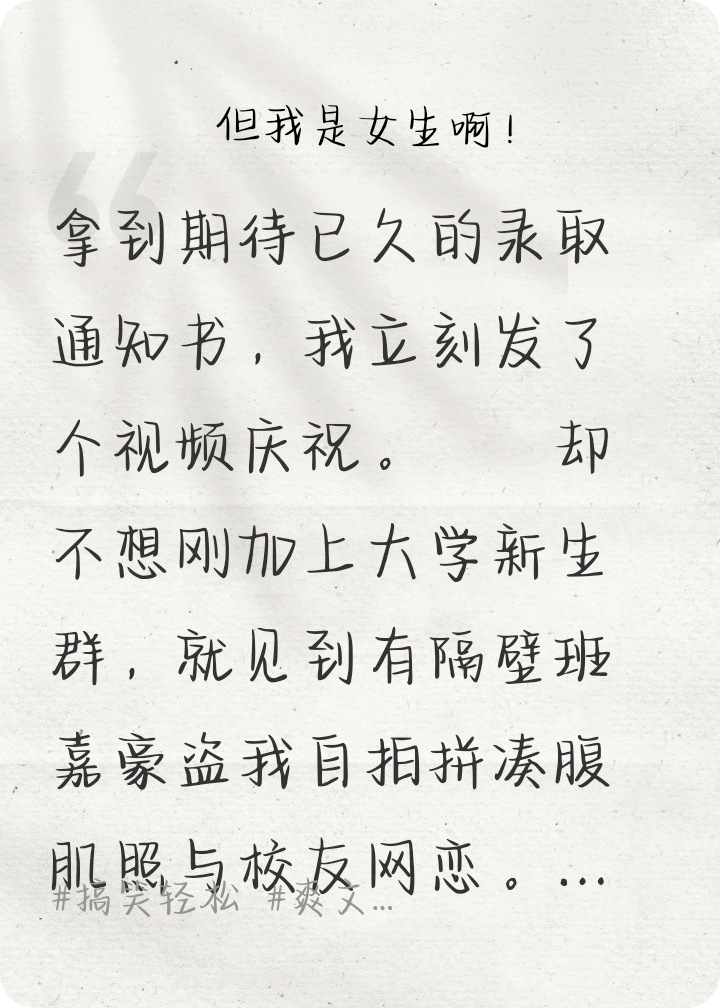 但我是女生啊！
拿到期待已久的录取
通知书，我立刻发了
个视频庆祝。　　却
不想刚加上大学新生
群，就见到有隔壁班
嘉豪盗我自拍拼凑腹
肌照与校友网恋。...
#搞笑轻松 #爽文...